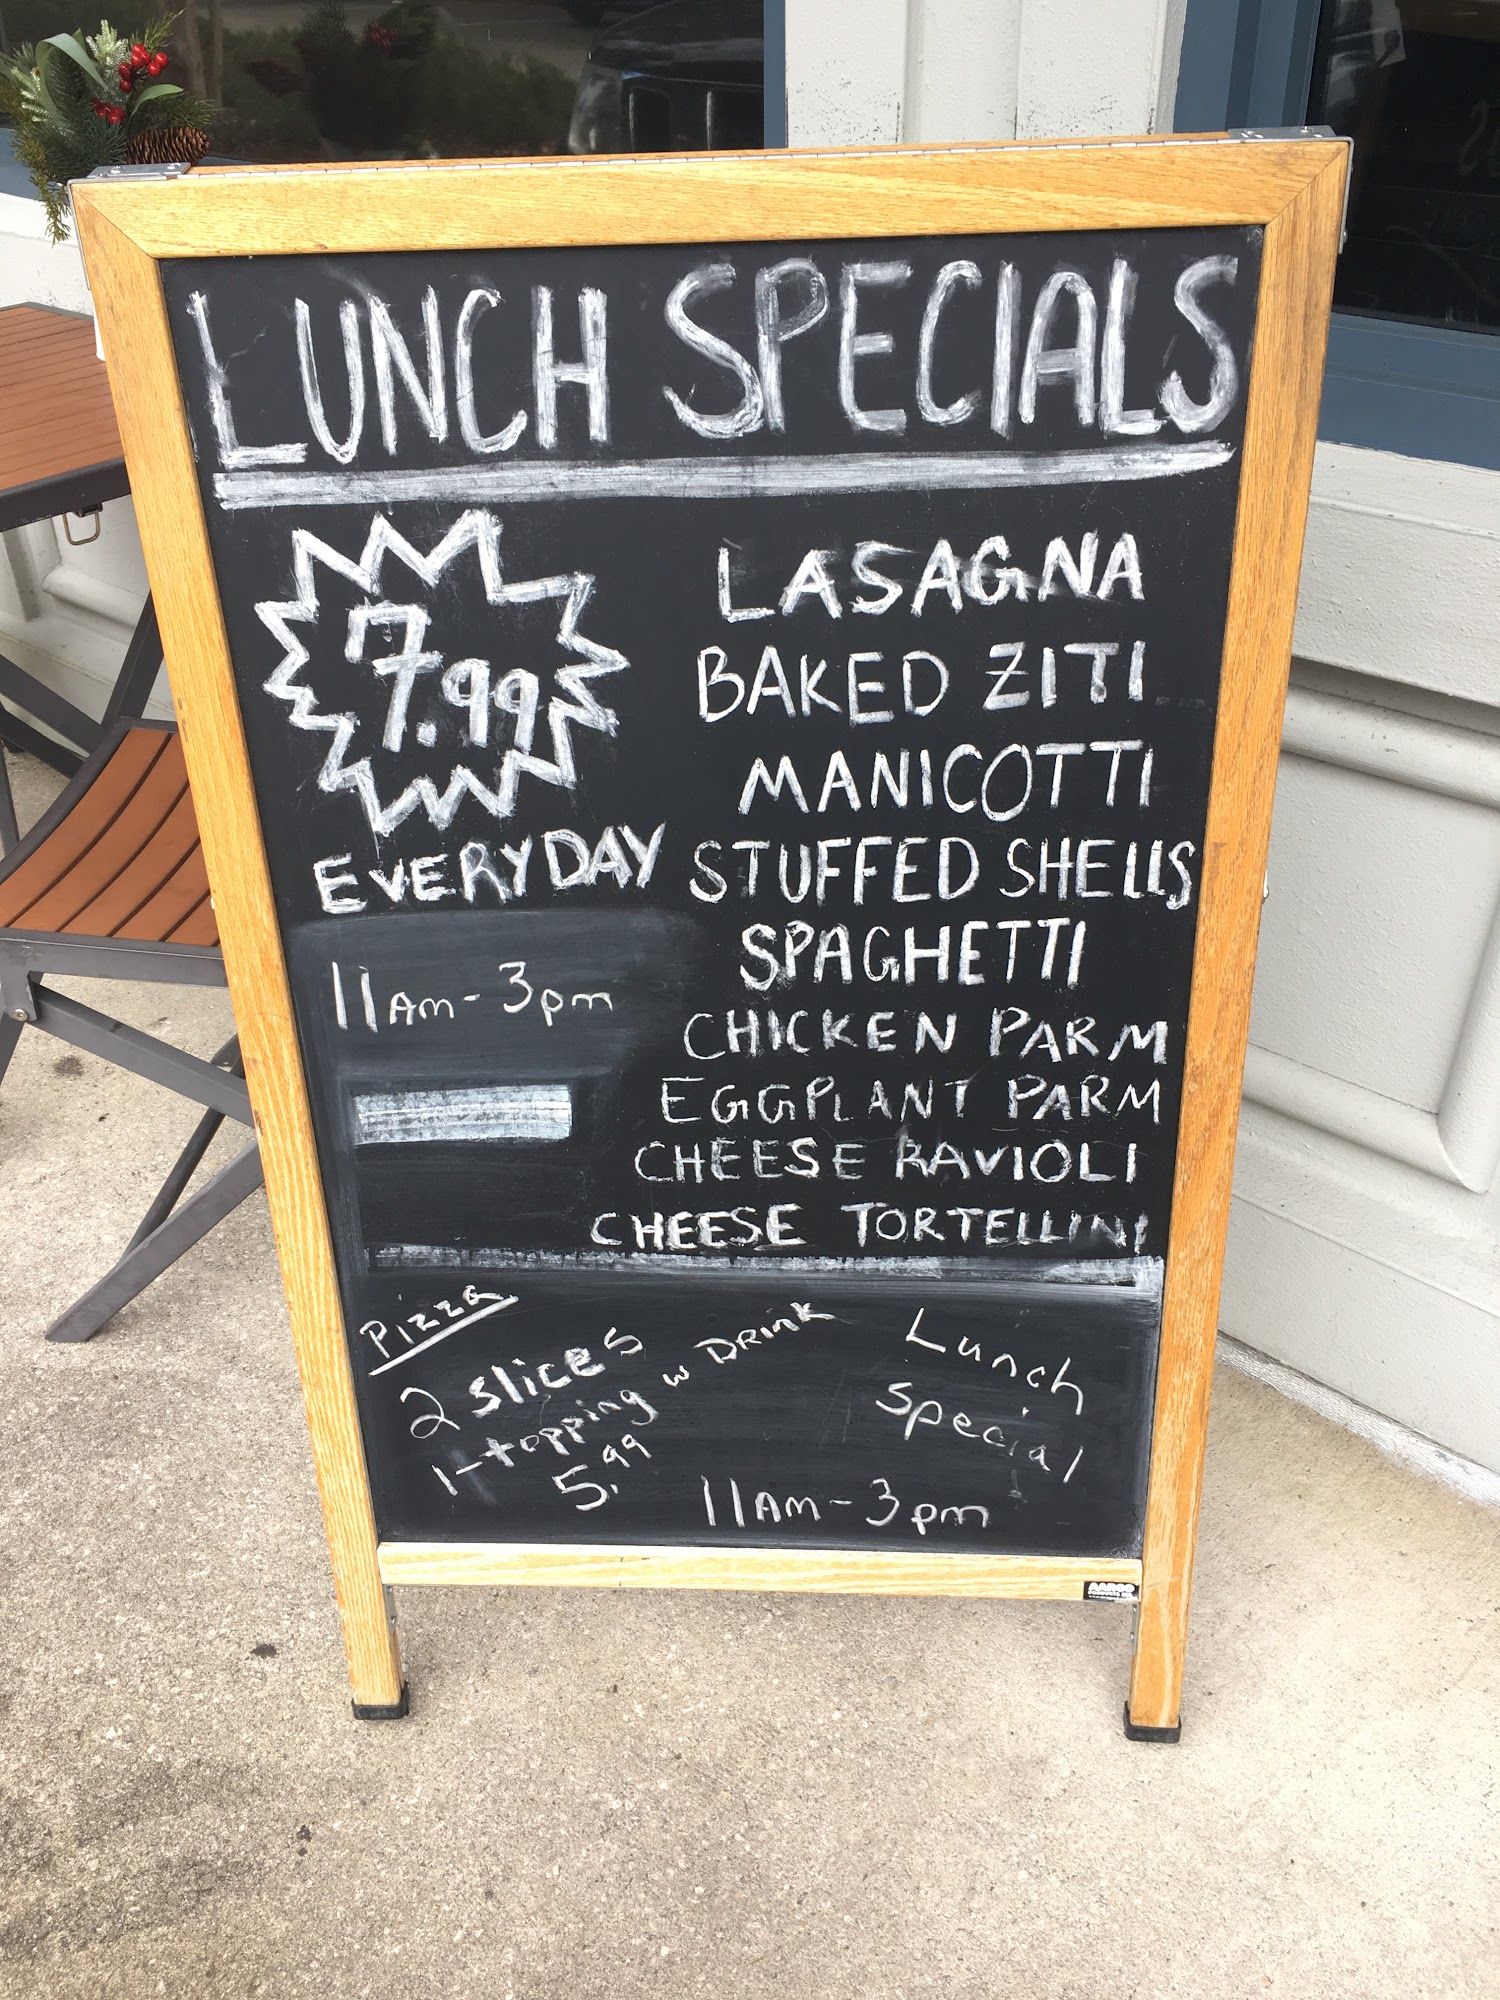 LUNCH SPECIALS
7.99
EVERYDAY
11AM - 3pm
LASAGNA
BAKED ZITI
MANICOTTI
STUFFED SHELLS
SPAGHETTI
CHICKEN PARM
EGGPLANT PARM
CHEESE RAVIOLI
CHEESE TORTELLINI
Pizza
2 slices
1-topping w DRINK
5.99
Lunch
Special
11AM - 3pm
AARCO